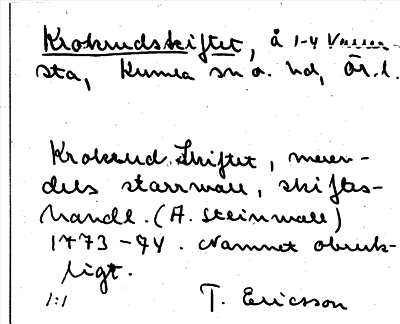 Krokrudskiftet, å 1-4
sta, Kumla sn o. hd, Ör. l.
Krokrud Skiftet, meren-
dels starrwall, skiftes-
handl. (A. Steinwall)
1773-74. Namnet obruk-
ligt.
1:1 T. Ericsson